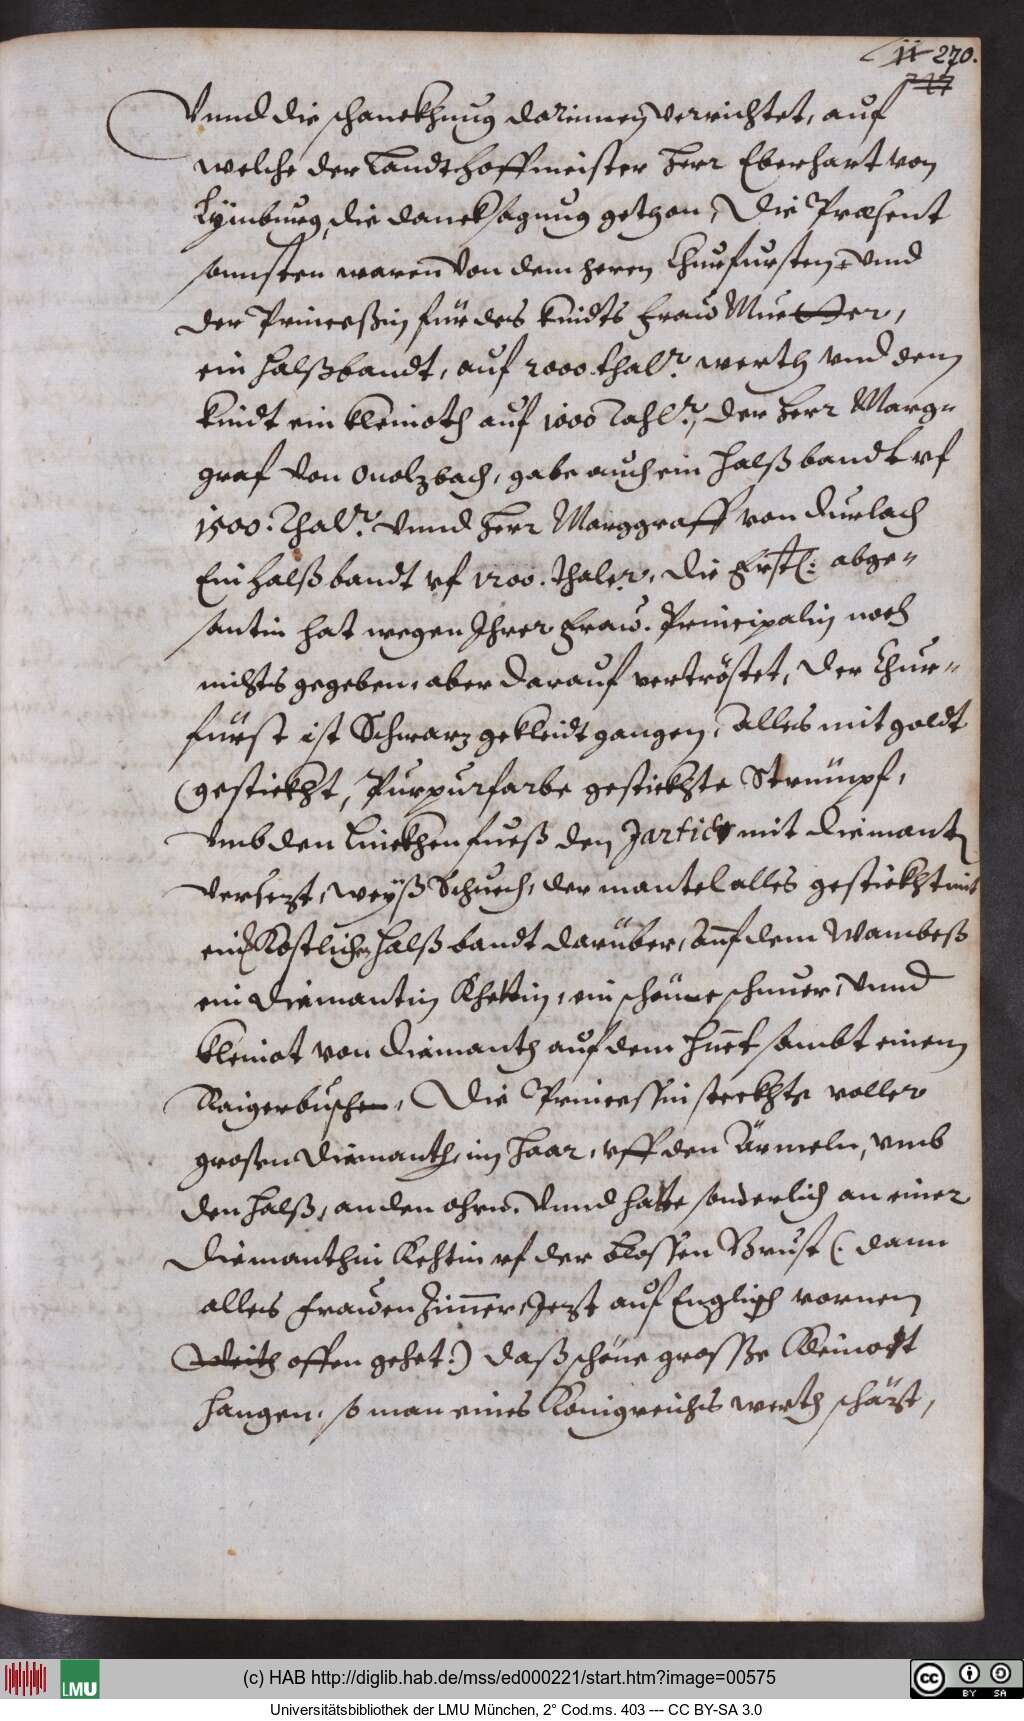 ii 270.
717
Vnnd die schanckhung darinnen verrichtet, auf
welche der Landthoffmeister Herr Eberhart von
Lymburg, die dancksagung gethan, Die Præsent
sonnsten waren von dem herrn Churfursten, vnnd
der Princeßin für des kindts Fraw Muetter,
ein Halßbandt, auf 2000 thalr. werth vnd dem
kindt ein kleinoth auf 1000 Tahlr., der Herr Marg=
graf von Onolzbach, gabe auch ein Halßbandt vf
1500. Thalr. vnnd Herr Marggraff von Durlach
Ein Halßbandt vf 1200. thaler, die Frstl: abge=
santin hat wegen Ihrer Fraw. Principalin noch
nichts gegeben, aber darauf vertröstet, Der Chur=
fürst ist Schwarz gekleidt gangen, alles mit goldt
gestickht, Purpurfarbe gestickhte Strümpf,
vmb den linckhen fueß den Jartier mit diemant
versezt, weyß Schuech, der mantel alles gestickht mit
eim Köstlichen Halßbandt darüber, Auf dem Wambeß
ein diemantin Khettin, ein schöne schnuer, vnnd
kleinot von diemanth auf dem Huet sambt einem
Raigerbuschen, Die Princessin steckhte voller
grossen diemanth, im Haar, vff den Ärmeln, vmb
den Halß, an den ohrn. vnnd hatte sonderlich an einer
diemanthin Kehtin vf der blossen Brust (: dann
alles Frawen Zimmer, Jezt auf Englisch vornen
Weith offen gehet:) daß schöne grosse Kleinodt
hangen, so man eines Königreichs werth schäzt,
(c) HAB http://diglib.hab.de/mss/ed000221/start.htm?image=00575
LMU
cc BY SA
Universitätsbibliothek der LMU München, 2° Cod.ms. 403 --- CC BY-SA 3.0